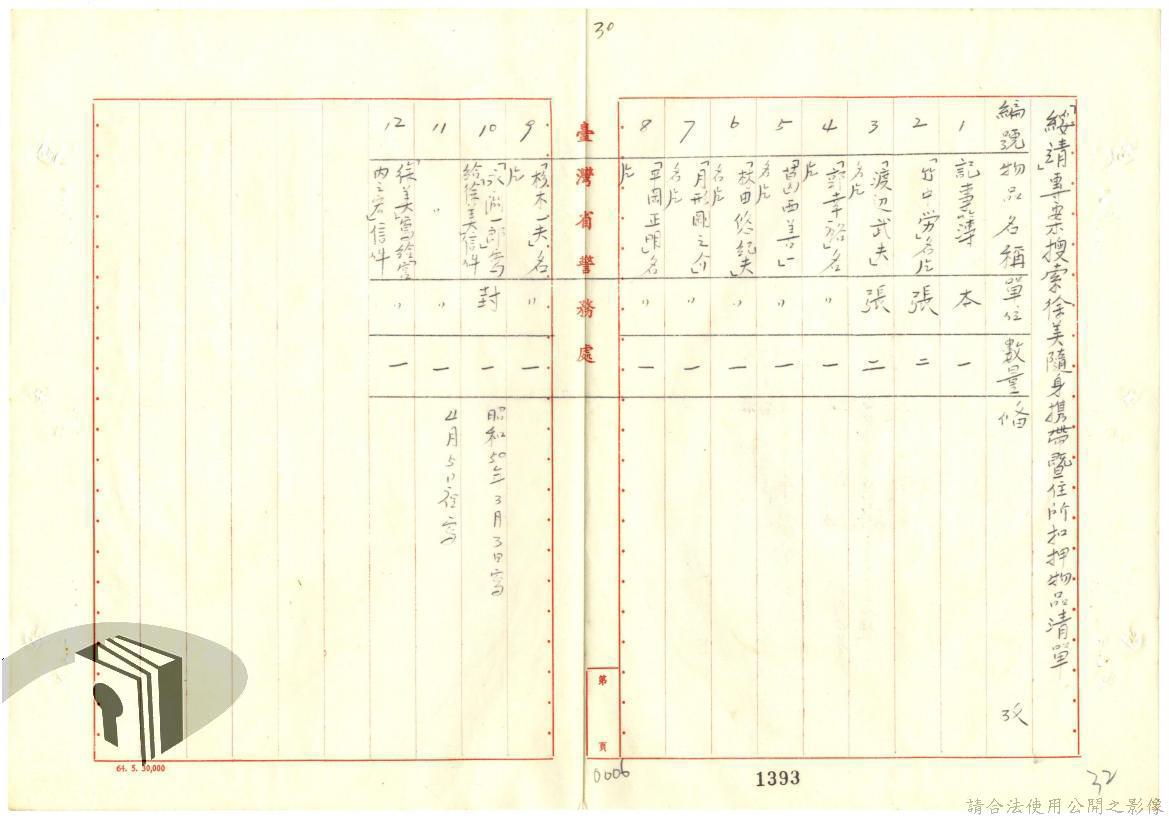 30
「綏靖」專案搜索徐美隨身携帶暨住所扣押物品清單
編號 物品名稱 單位 數量 備
1 記事簿 本 一
2 「竹中労」名片 張 二
3 「渡辺武夫」名片 張 二
4 名片 〃 一
5 名片 〃 一
6 「枚田悠紀夫」名片 〃 一
7 「月形剛之介」名片 〃 一
8 「平岡正明」名片 〃 一
臺灣省警務處
9 「杉木一夫」名片 〃 一
10 一郎寫給徐美」信件 封 一 昭和50年3月3日寫
11 〃 〃 一 4月5日
12 「徐美寫給 信件 〃 一
第 頁
64. 5. 30,000
0006
1393
32
請合法使用公開之影像